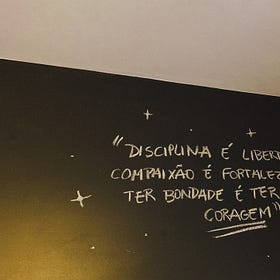 "DISCIPLINA É LIBER
COMPAIXÃO É FORTALEZ
TER BONDADE É TER
CORAGEM"